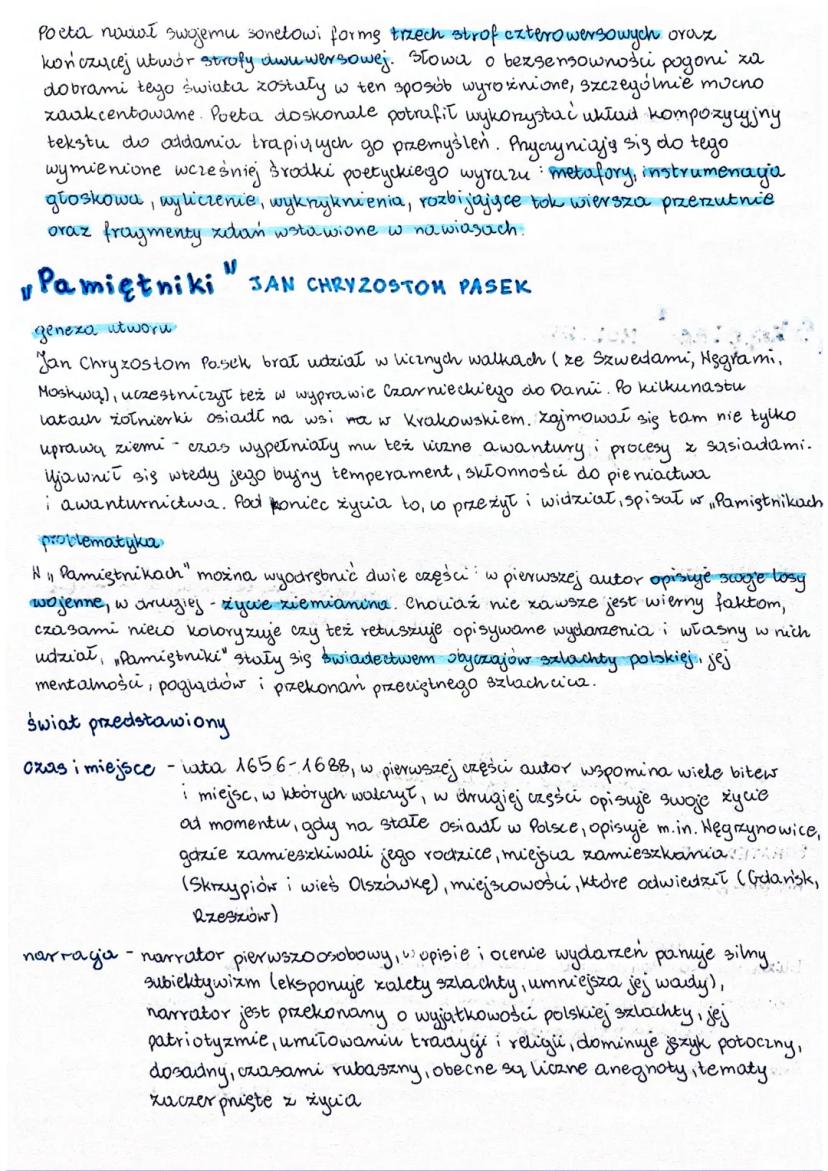 Poeta nadał swojemu sonetowi formę trzech strof czterowersowych oraz
kończącej utwór strofy dwuwersowej. Słowa o bezsensowności pogoni za
dobrami tego świata zostały w ten sposób wyróżnione, szczególnie mocno
zaakcentowane. Poeta doskonale potrafił wykorzystać układ kompozycyjny
tekstu do oddania trapiących go przemyśleń. Przyczyniają się do tego
wymienione wcześniej środki poetyckiego wyrazu: metafory, instrumenacja
głoskowa, wyliczenie, wykrzyknienia, rozbijające tok wiersza przerzutnie
oraz fragmenty zdań wstawione w nawiasach.
"Pamiętniki" JAN CHRYZOSTOM PASEK
geneza utworu
Jan Chryzostom Pasek brał udział w licznych walkach (ze Szwedami, Węgrami,
Moskwą), uczestniczył też w wyprawie Czarnieckiego do Danii. Po kilkunastu
latach żołnierki osiadł na wsi na w Krakowskiem. Zajmował się tam nie tylko
uprawą ziemi - czas wypełniały mu też liczne awantury i procesy z sąsiadami.
Ujawnił się wtedy jego bujny temperament, skłonności do pieniactwa
i awanturnictwa. Pod koniec życia to, co przeżył i widział, spisał w „Pamiętnikach
problematyka
W „Pamiętnikach" można wyodrębnić dwie części: w pierwszej autor opisuje swoje losy
wojenne, w drugiej - życie ziemianina. Chociaż nie zawsze jest wierny faktom,
czasami nieco koloryzuje czy też retuszuje opisywane wydarzenia i własny w nich
udział, „Pamiętniki" stały się świadectwem obyczajów szlachty polskiej, jej
mentalności, poglądów i przekonań przeciętnego szlachcica.
świat przedstawiony
czas i miejsce - lata 1656-1688, w pierwszej części autor wspomina wiele bitew
i miejsc, w których walczył, w drugiej części opisuje swoje życie
od momentu, gdy na stałe osiadł w Polsce, opisuje m.in. Węgrzynowice,
gdzie zamieszkiwali jego rodzice, miejsca zamieszkania
(Skrzypiów i wieś Olszówkę), miejscowości, które odwiedził (Gdańsk,
Rzeszów)
narracja - narrator pierwszoosobowy, w opisie i ocenie wydarzeń panuje silny
subiektywizm (eksponuje zalety szlachty, umniejsza jej wady),
narrator jest przekonany o wyjątkowości polskiej szlachty, jej
patriotyzmie, umiłowaniu tradycji i religii, dominuje język potoczny,
dosadny, czasami rubaszny, obecne są liczne anegnoty, tematy
zaczerpnięte z życia